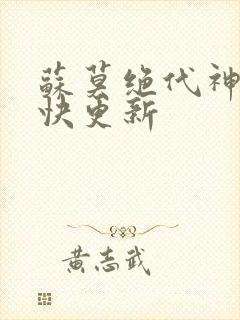 蘇莫绝代神
快更新
黄志武